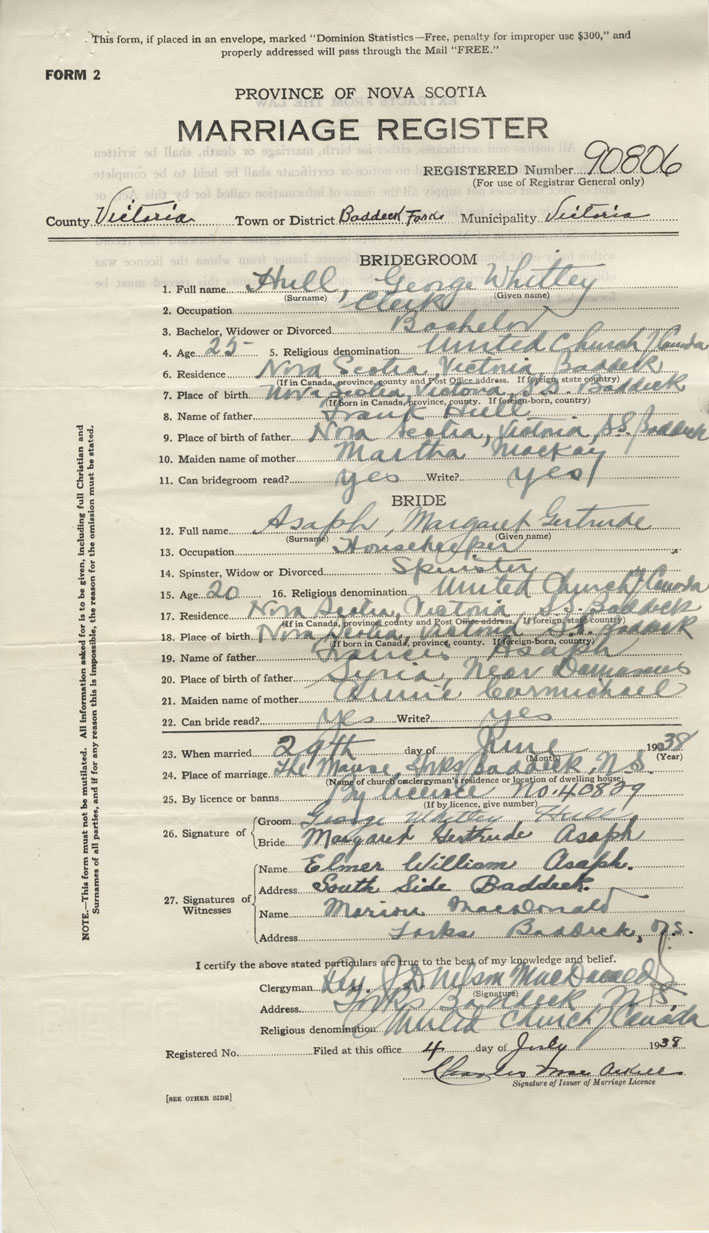 This form, if placed in an envelope, marked "Dominion Statistics—Free, penalty for improper use $300," and
properly addressed will pass through the Mail "FREE."
FORM 2
PROVINCE OF NOVA SCOTIA
MARRIAGE REGISTER
REGISTERED Number 90806
(For use of Registrar General only)
County Victoria Town or District Baddeck Forks Municipality Victoria
BRIDEGROOM
1. Full name Hull, George Whitley
(Surname) (Given name)
2. Occupation Clerk
3. Bachelor, Widower or Divorced Bachelor
4. Age 25 5. Religious denomination United Church of Canada
6. Residence Nova Scotia, Victoria, Baddeck
(If in Canada, province, county and Post Office address. If foreign, state country)
7. Place of birth Nova Scotia, Victoria, S.S. Baddeck
(If born in Canada, province, county. If foreign-born, country)
8. Name of father Frank Hull
9. Place of birth of father Nova Scotia, Victoria, S.S. Baddeck
10. Maiden name of mother Martha Mackay
11. Can bridegroom read? yes Write? yes
BRIDE
12. Full name Asaph, Margaret Gertrude
(Surname) (Given name)
13. Occupation Housekeeper
14. Spinster, Widow or Divorced Spinster
15. Age 20 16. Religious denomination United Church of Canada
17. Residence Nova Scotia, Victoria, S.S. Baddeck
(If in Canada, province, county and Post Office address. If foreign, state country)
18. Place of birth Nova Scotia, Victoria, S.S. Baddeck
(If born in Canada, province, county. If foreign-born, country)
19. Name of father Francis Asaph
20. Place of birth of father Syria, Near Damascus
21. Maiden name of mother Annie Carmichael
22. Can bride read? yes Write? yes
23. When married 29th day of June 1938
(Month) (Year)
24. Place of marriage The Manse Forks Baddeck, N.S.
(Name of church or clergyman's residence or location of dwelling house)
25. By licence or banns By licence No. 40809
(If by licence, give number)
26. Signature of
Groom George Whitley Hull
Bride Margaret Gertrude Asaph
27. Signatures of Witnesses
Name Elmer William Asaph.
Address South Side Baddeck.
Name Marion MacDonald
Address Forks Baddeck, N.S.
I certify the above stated particulars are true to the best of my knowledge and belief.
Clergyman Rev. J. D. Nelson MacDonald
(Signature)
Address Forks Baddeck, N.S.
Religious denomination United Church of Canada
Registered No. Filed at this office 4 day of July 1938
Charles Mac
Signature of Issuer of Marriage Licence
[SEE OTHER SIDE]
NOTE.—This form must not be mutilated. All information asked for is to be given, including full Christian and
Surnames of all parties, and if for any reason this is impossible, the reason for the omission must be stated.